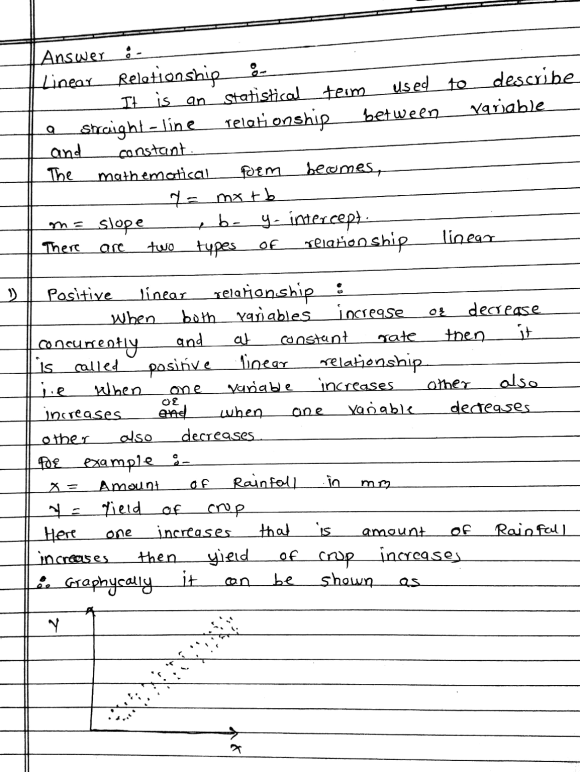 Answer :-
Linear Relationship :-
It is an statistical term used to describe
a straight-line relationship between variable
and constant.
The mathematical form becomes,
Y = mx + b
m = slope , b - y-intercept.
There are two types of relationship linear
1) Positive linear relationship :
When both variables increase or decrease
concurrently and at constant rate then it
is called positive linear relationship.
i.e when one variable increases other also
increases or and when one variable decreases
other also decreases.
for example :-
x = Amount of Rainfall in mm
y = Yield of crop
Here one increases that is amount of Rainfall
increases then yield of crop increases
∴ Graphycally it can be shown as
Y
x